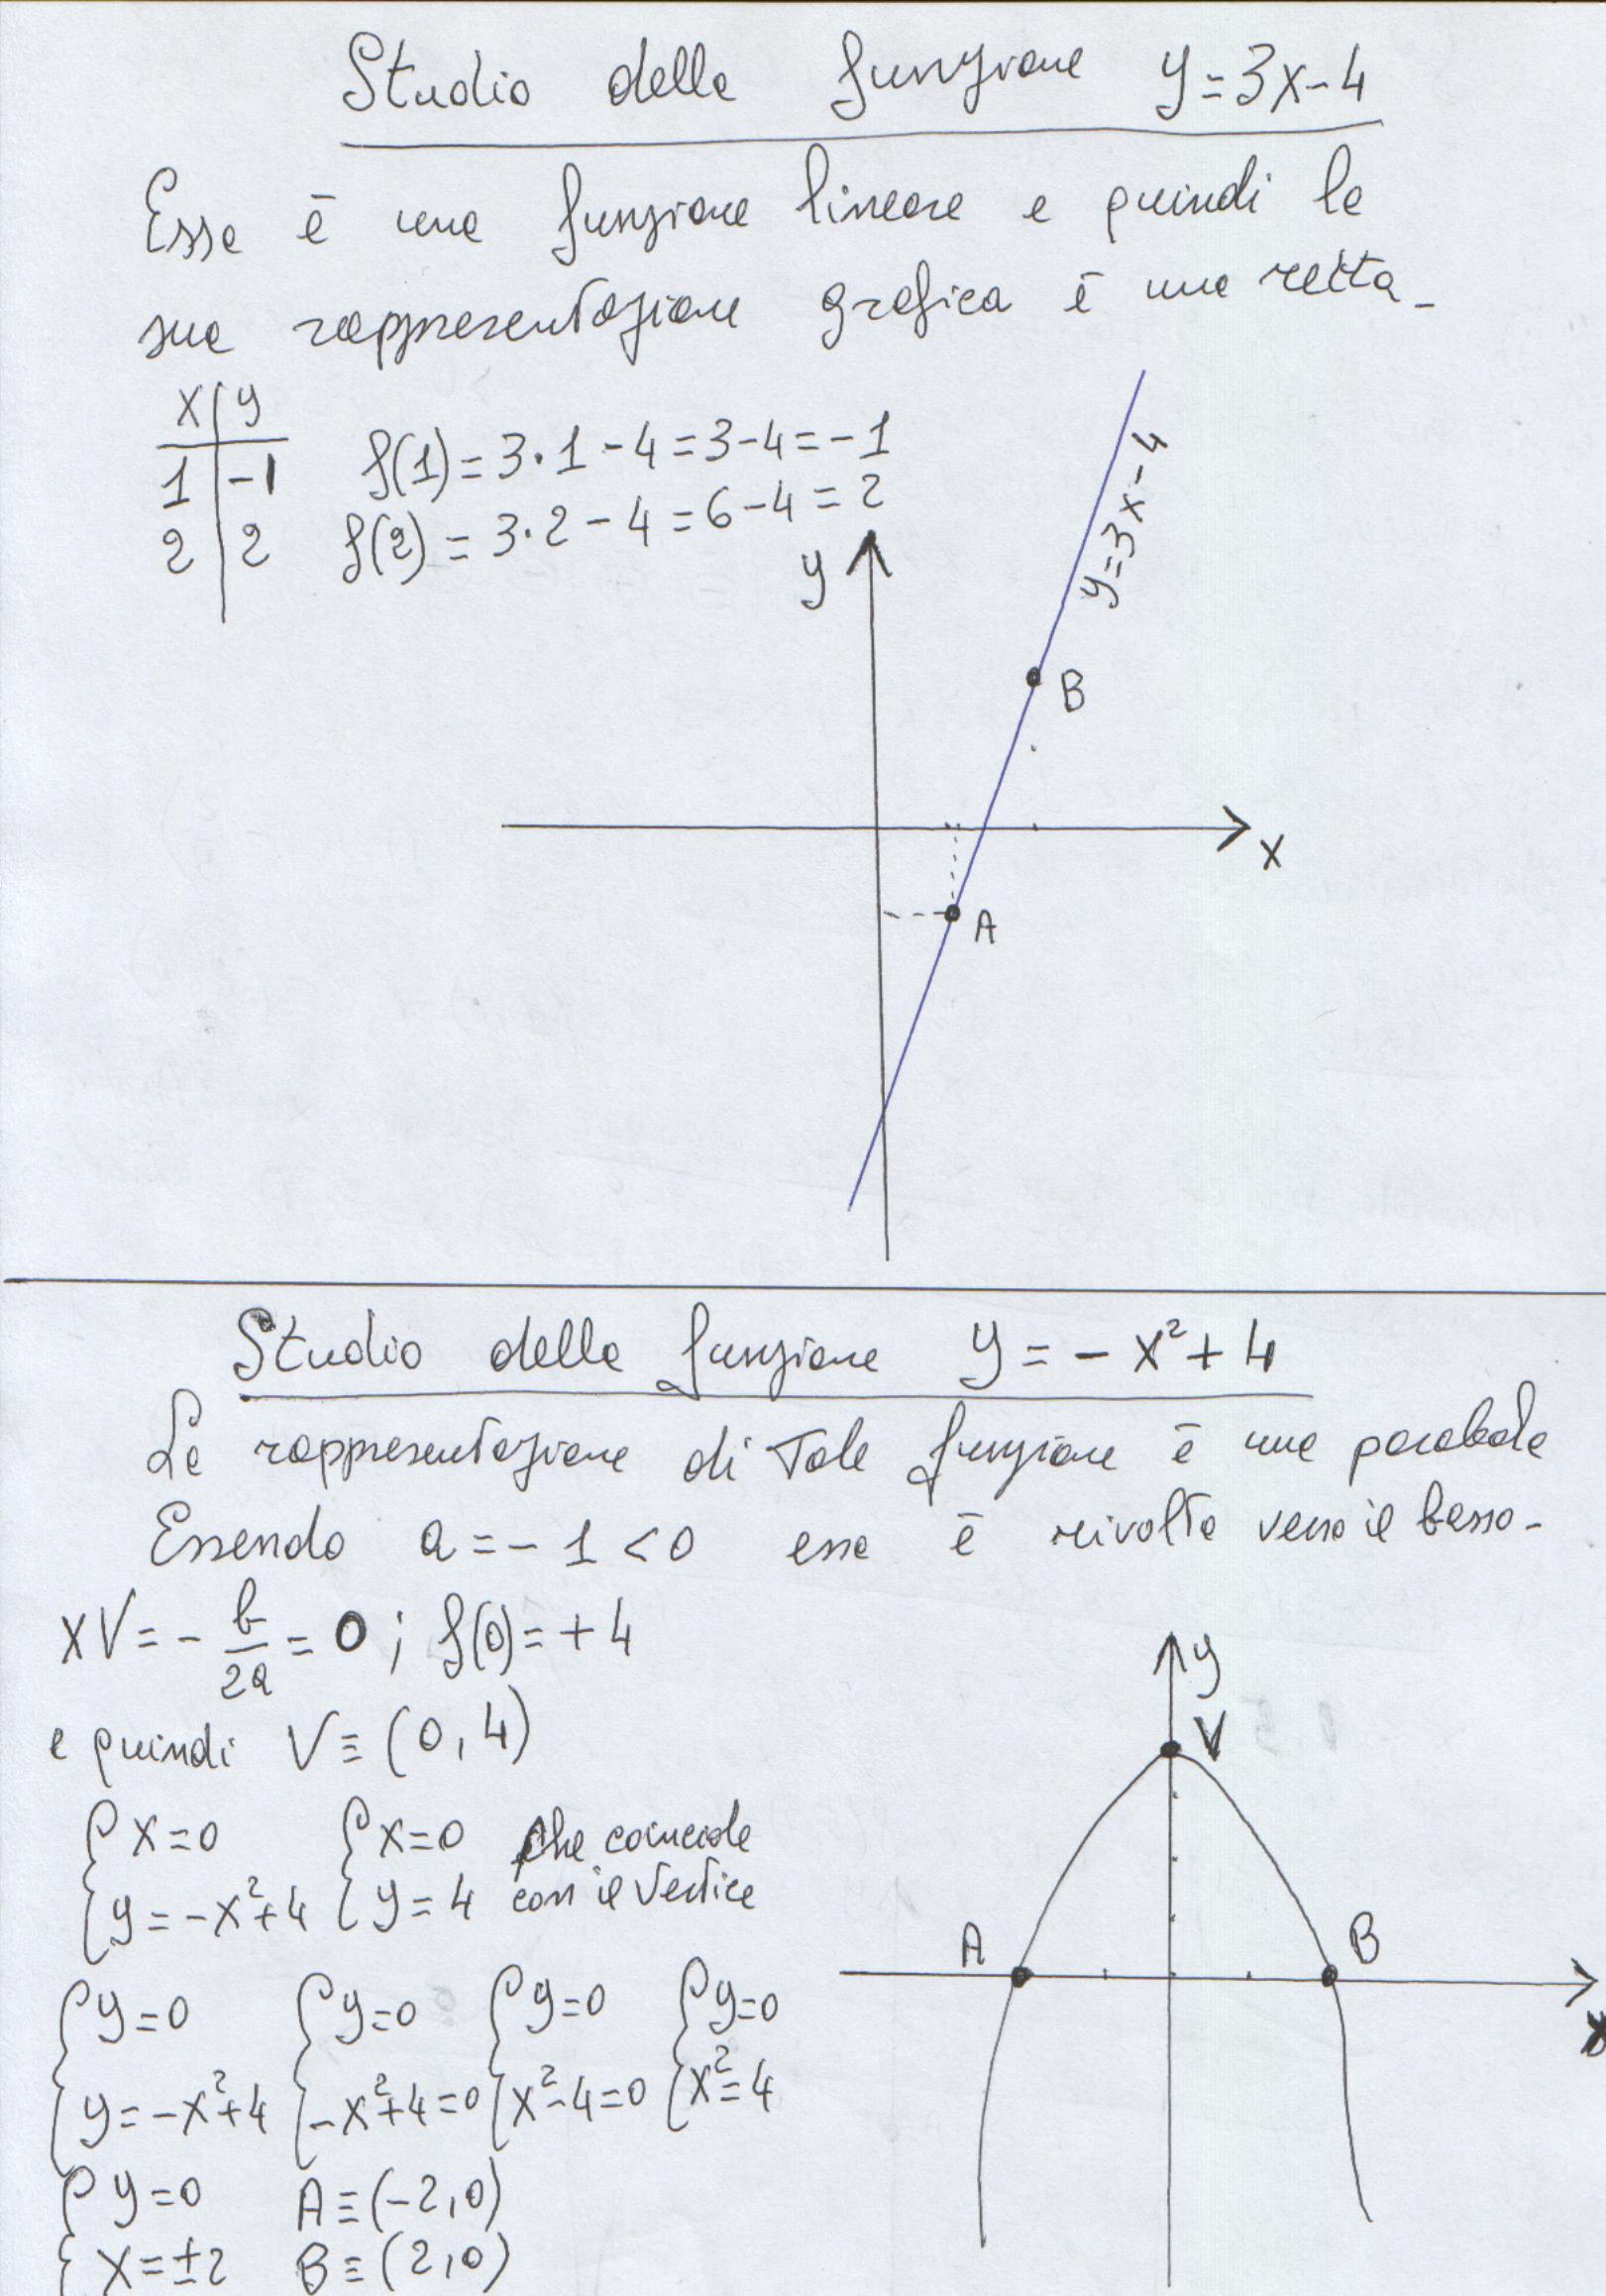 Studio della funzione y=3x-4
Essa è una funzione lineare e quindi la
sua rappresentazione grafica è una retta-
x | y
1 | -1 f(1)=3·1-4=3-4=-1
2 | 2 f(2)=3·2-4=6-4=2
y
y=3x-4
B
x
A
Studio della funzione y=-x²+4
La rappresentazione di tale funzione è una parabola
Essendo a=-1<0 essa è rivolta verso il basso-
xV=-b/2a=0; f(0)=+4
e quindi V≡(0,4)
{x=0 {x=0 che coincide
{y=-x²+4 {y=4 con il vertice
{y=0 {y=0 {y=0 {y=0
{y=-x²+4 {-x²+4=0 {x²-4=0 {x²=4
{y=0 A≡(-2,0)
{x=±2 B≡(2,0)
y
V
A
B
x